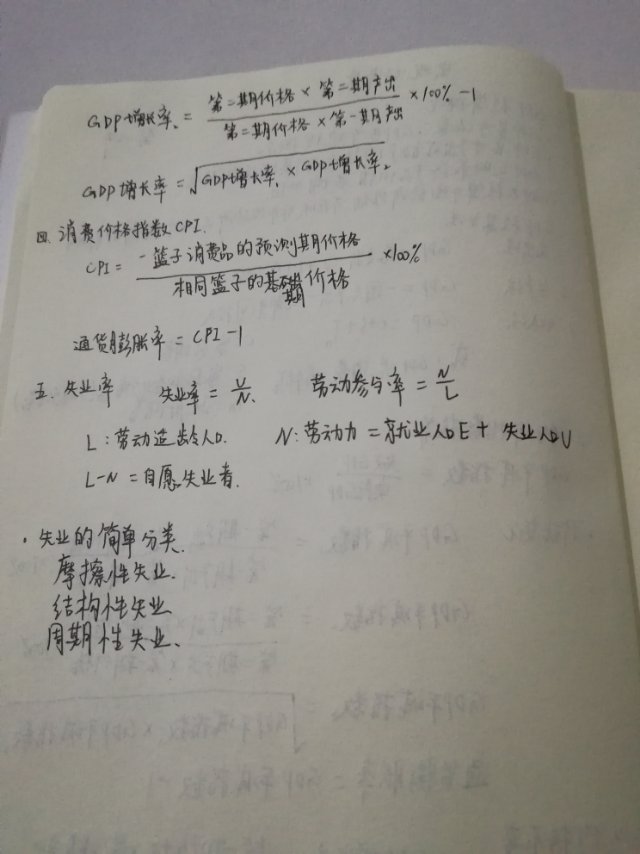 GDP增长率₂ = 第二期价格 × 第二期产出 / 第二期价格 × 第一期产出 × 100% - 1
GDP增长率 = √GDP增长率₁ × GDP增长率₂
四. 消费价格指数CPI.
CPI = 一篮子消费品的预测期价格 / 相同篮子的基期价格 ×100%
通货膨胀率 = CPI - 1
五. 失业率 失业率 = U/N. 劳动参与率 = N/L
L:劳动适龄人口. N:劳动力 = 就业人口E + 失业人口U
L-N = 自愿失业者.
· 失业的简单分类.
摩擦性失业.
结构性失业
周期性失业.